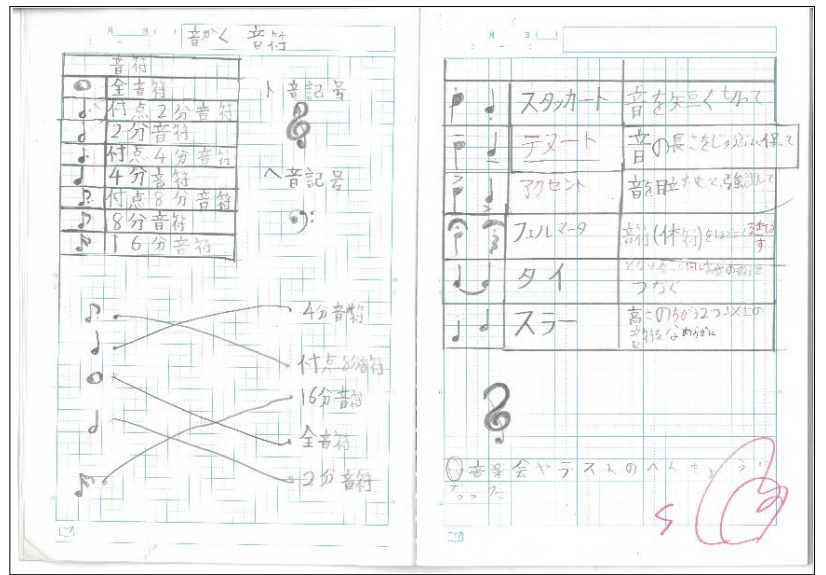 音がく 音符
音符
全音符
付点2分音符
2分音符
付点4分音符
4分音符
付点8分音符
8分音符
16分音符
ト音記号
ヘ音記号
4分音符
付点8分音符
16分音符
全音符
2分音符
月 日( )
スタッカート 音を短く切って
テヌート 音の長さをじゅうぶん保って
アクセント 音を目立たせて、強調して
フェルマータ 音符(休符)をほどよくのばす
タイ となり合う同じ高さの音を
つなぐ
スラー 高さのちがう2つ以上の
音符をなめらかに
音楽会やテストの